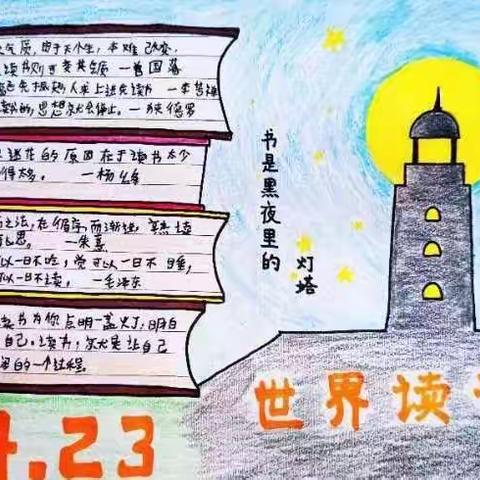 气质,由于天生,本难改变,
读书则可变其气质 一曾国落
人求上进先读书 一李苦禅
思想就会停止。一狄德罗
迷茫的原因在于读书太少
得太多。 一杨绛
之法,在循序而渐进,熟读
思。 一朱熹
以一日不吃,觉可以一日不睡,
以一日不读。 一毛泽东
读书为你点明一盏灯;明白
自己。读书,就是让自己
的一个过程。
书是黑夜里的
灯塔
4.23
世界读